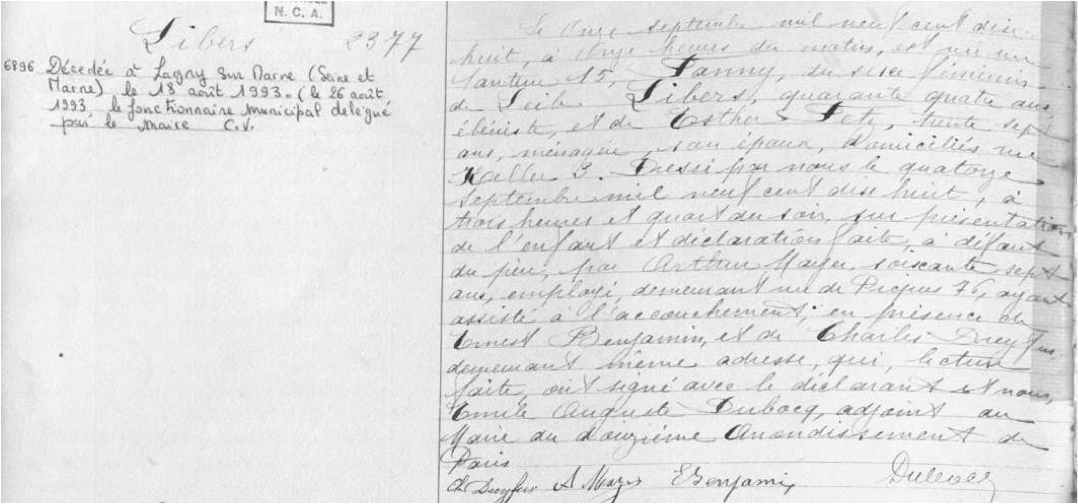 N. C. A.
Libers 2377
6896 Décedée à Lagny sur Marne (Seine et
Marne) le 18 août 1993. (le 26 août
1993 le fonctionnaire municipal délégué
par le Maire C.V.
Le onze septembre mil neuf cent dix
huit, à onze heures du matin, est née rue
Santerre 15, Fanny, du sexe féminin
de Leib Libers, quarante quatre ans
ébéniste, et de Esther, trente sept
ans, ménagère, son épouse, domiciliés rue
Keller 3. Dressé par nous le quatorze
septembre mil neuf cent dix huit, à
trois heures et quart du soir, sur présentation
de l'enfant et déclaration faite, à défaut
du père, par Arthur Mayer, soixante sept
ans, employé, demeurant rue de Picpus 76, ayant
assisté à l'accouchement; en présence de
Ernest Benjamin, et de Charles Dreyfus
demeurant même adresse, qui, lecture
faite, ont signé avec le déclarant et nous,
Emile Auguste Dubocq, adjoint au
Maire du douzième Arrondissement de
Paris
Ch Dreyfus A Mayer E Benjamin Dubocq